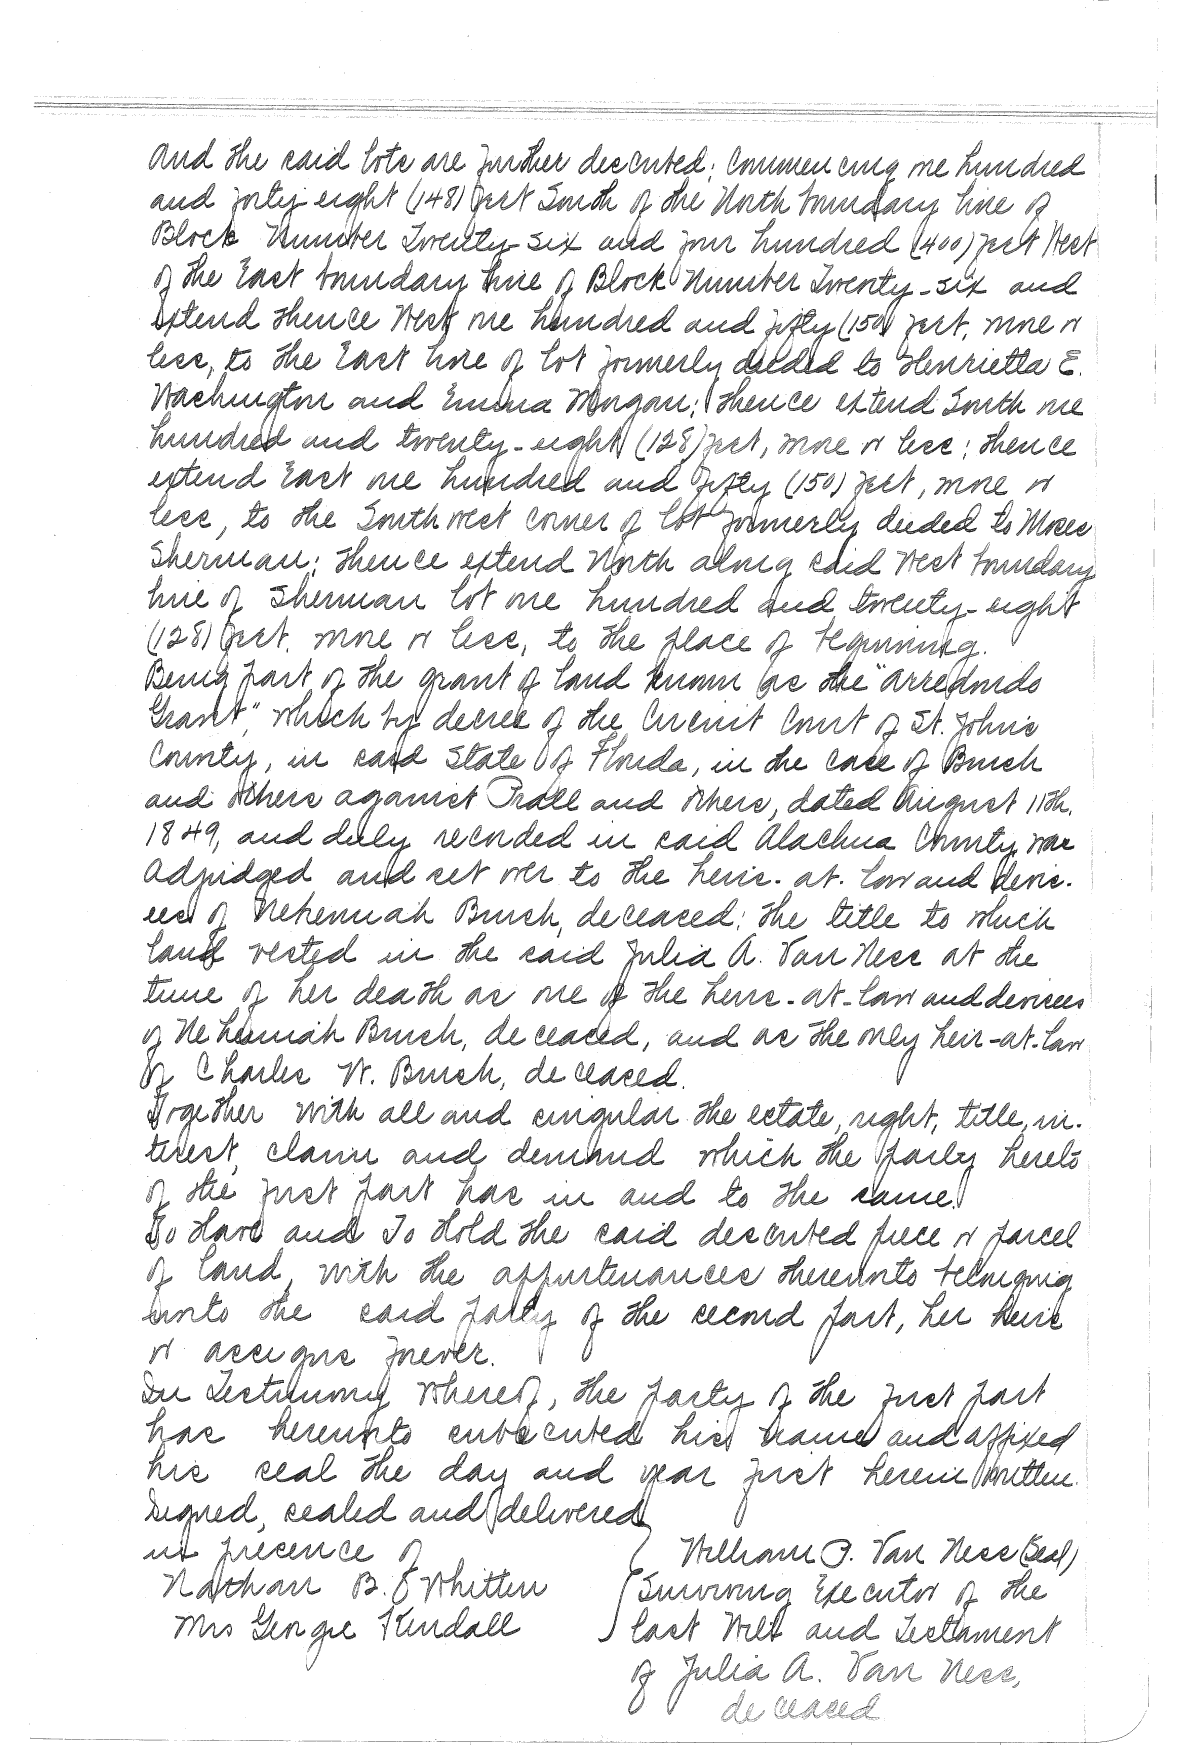 And the said lots are further described; Commencing one hundred
and forty eight (148) feet South of the North boundary line of
Block Number Twenty-six and four hundred (400) feet West
of the East boundary line of Block Number Twenty-six and
extend thence West one hundred and fifty (150) feet, more or
less, to the East line of lot formerly deeded to Henrietta E.
Washington and Emma Morgan; thence extend South one
hundred and twenty-eight (128) feet, more or less; thence
extend East one hundred and fifty (150) feet, more or
less, to the Southwest corner of lot formerly deeded to Moses
Sherman; thence extend North along said West boundary
line of Sherman lot one hundred and twenty-eight
(128) feet. more or less, to the place of beginning.
Being part of the grant of land known as the "Arredondo
Grant", which by decree of the Circuit Court of St. Johns
County, in said State of Florida, in the case of Burch
and others against Prall and others, dated August 11th.
1849, and duly recorded in said Alachua County was
adjudged and set over to the heirs-at-law and devis-
ees of Nehemiah Burch, deceased; the title to which
land vested in the said Julia A. Van Ness at the
time of her death as one of the heirs-at-law and devisees
of Nehemiah Burch, deceased, and as the only heir-at-law
of Charles W. Burch, deceased.
Together with all and singular the estate, right, title, in-
terest, claim and demand which the party hereto
of the first part has in and to the same.
To Have and To Hold the said described piece or parcel
of land, with the appurtenances thereunto belonging
unto the said party of the second part, her heirs
or assigns forever.
In Testimony Whereof, the party of the first part
has hereunto subscribed his name and affixed
his seal the day and year first herein written.
Signed, sealed and delivered
in presence of
Nathan B. Whitten
Mrs Georgie Kendall
William P. Van Ness (Seal)
Surviving Executor of the
Last Will and Testament
of Julia A. Van Ness,
deceased